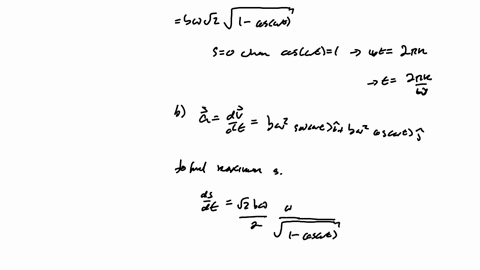 = bω√2 √(1 - cos(ωt))
s=0 when cos(ωt)=1 → ωt = 2πn
→ t = 2πn/ω
b) a⃗ = dv⃗/dt = bω² sin(ωt) î + bω² cos(ωt) ĵ
to find maximum s.
ds/dt = √2 bω/2 ω/√(1-cos(ωt))